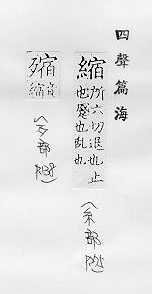 四聲篇海
縮所六切退也止
也蹙也亂也
(糸部
音
縮
(歹部